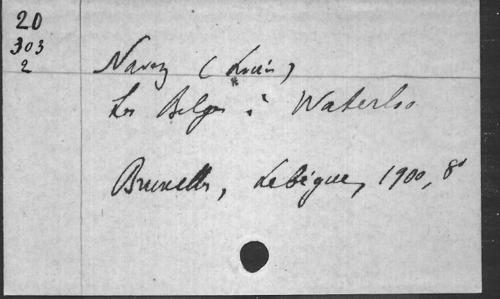 20
303
2
Navez (Louis)
Les Belges à Waterloo
Bruxelles, Lebègue, 1900, 8°